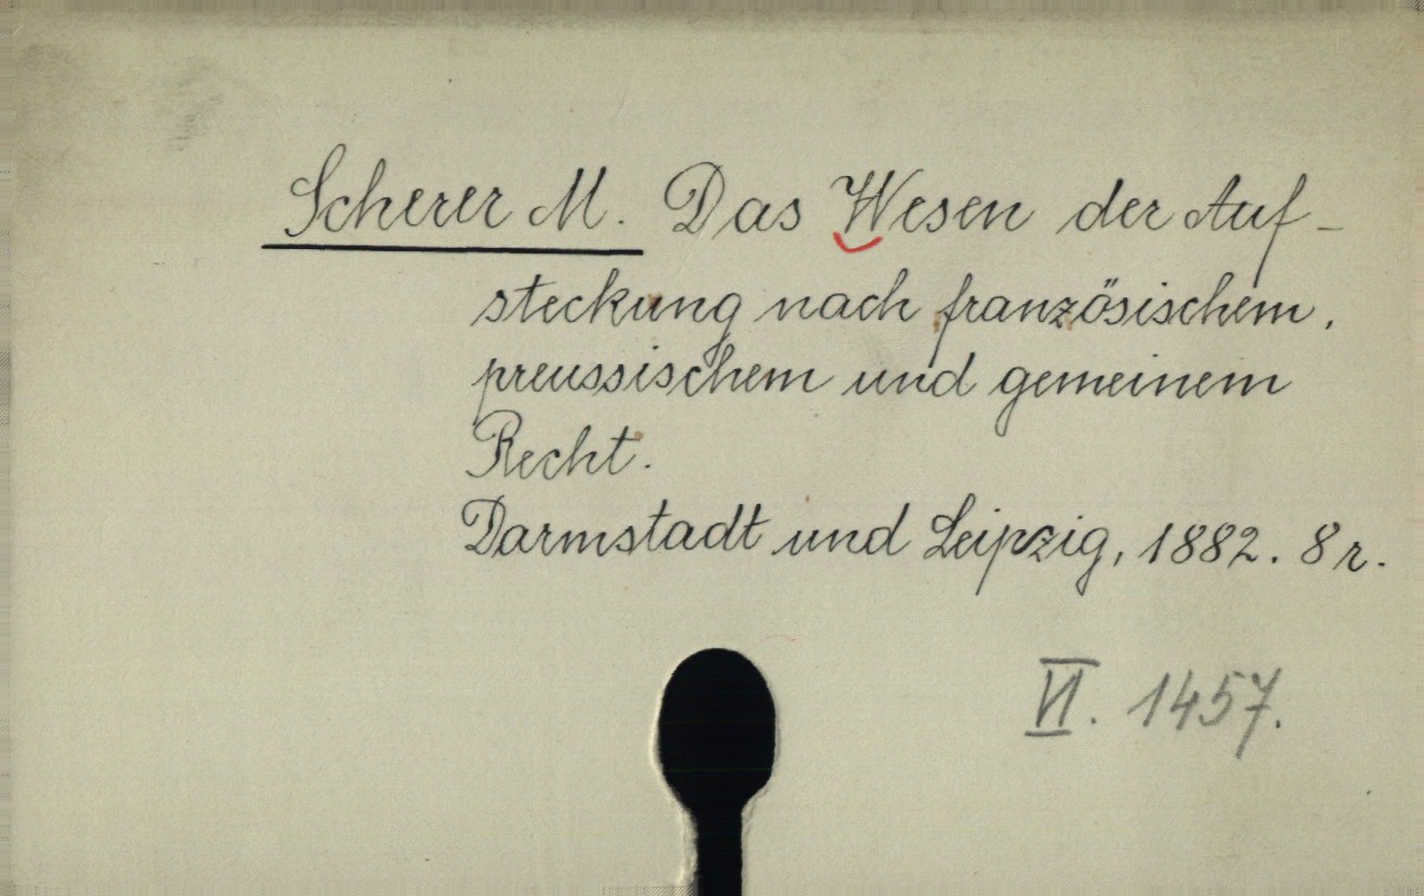 Scherer M. Das Wesen der Auf-
steckung nach französischem,
preussischem und gemeinem
Recht.
Darmstadt und Leipzig, 1882. 8 r.
VI. 1457.